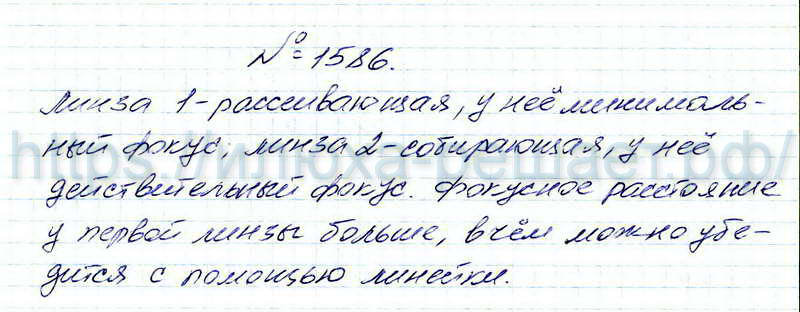 № 1586.
Линза 1-рассеивающая, у неё минималь-
ный фокус, линза 2-собирающая, у неё
действительный фокус. Фокусное расстояние
у первой линзы больше, в чём можно убе-
дится с помощью линейки.